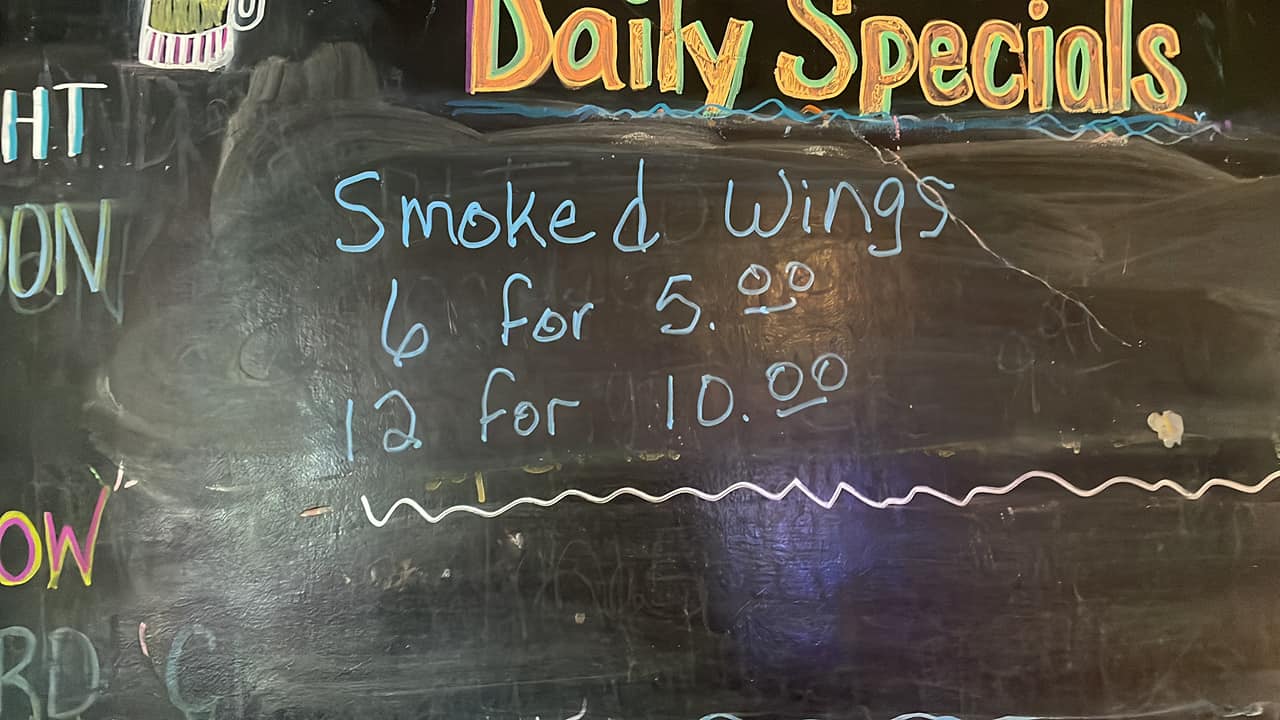 Daily Specials
HT
Smoked Wings
ON
6 for 5.00
12 for 10.00
OW
RD C